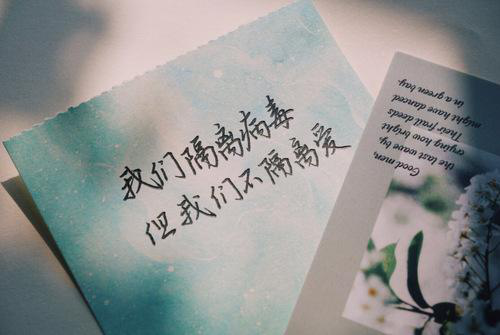 我们隔离病毒
但我们不隔离爱
Good men,
the last wave by,
crying how bright
Their frail deeds
might have danced
in a green bay.